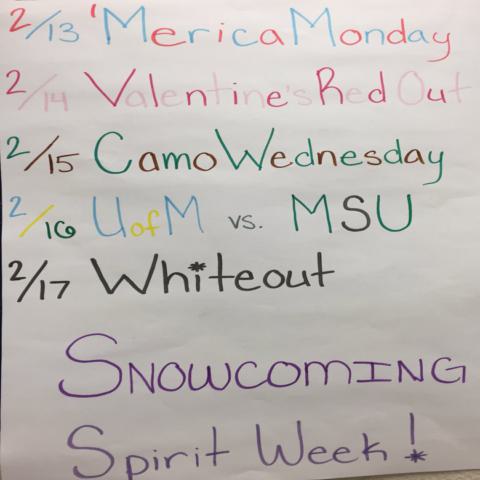 2/13 'Merica Monday
2/14 Valentine's Red Out
2/15 Camo Wednesday
2/16 U of M vs. MSU
2/17 Whiteout
SNOWCOMING
Spirit Week!